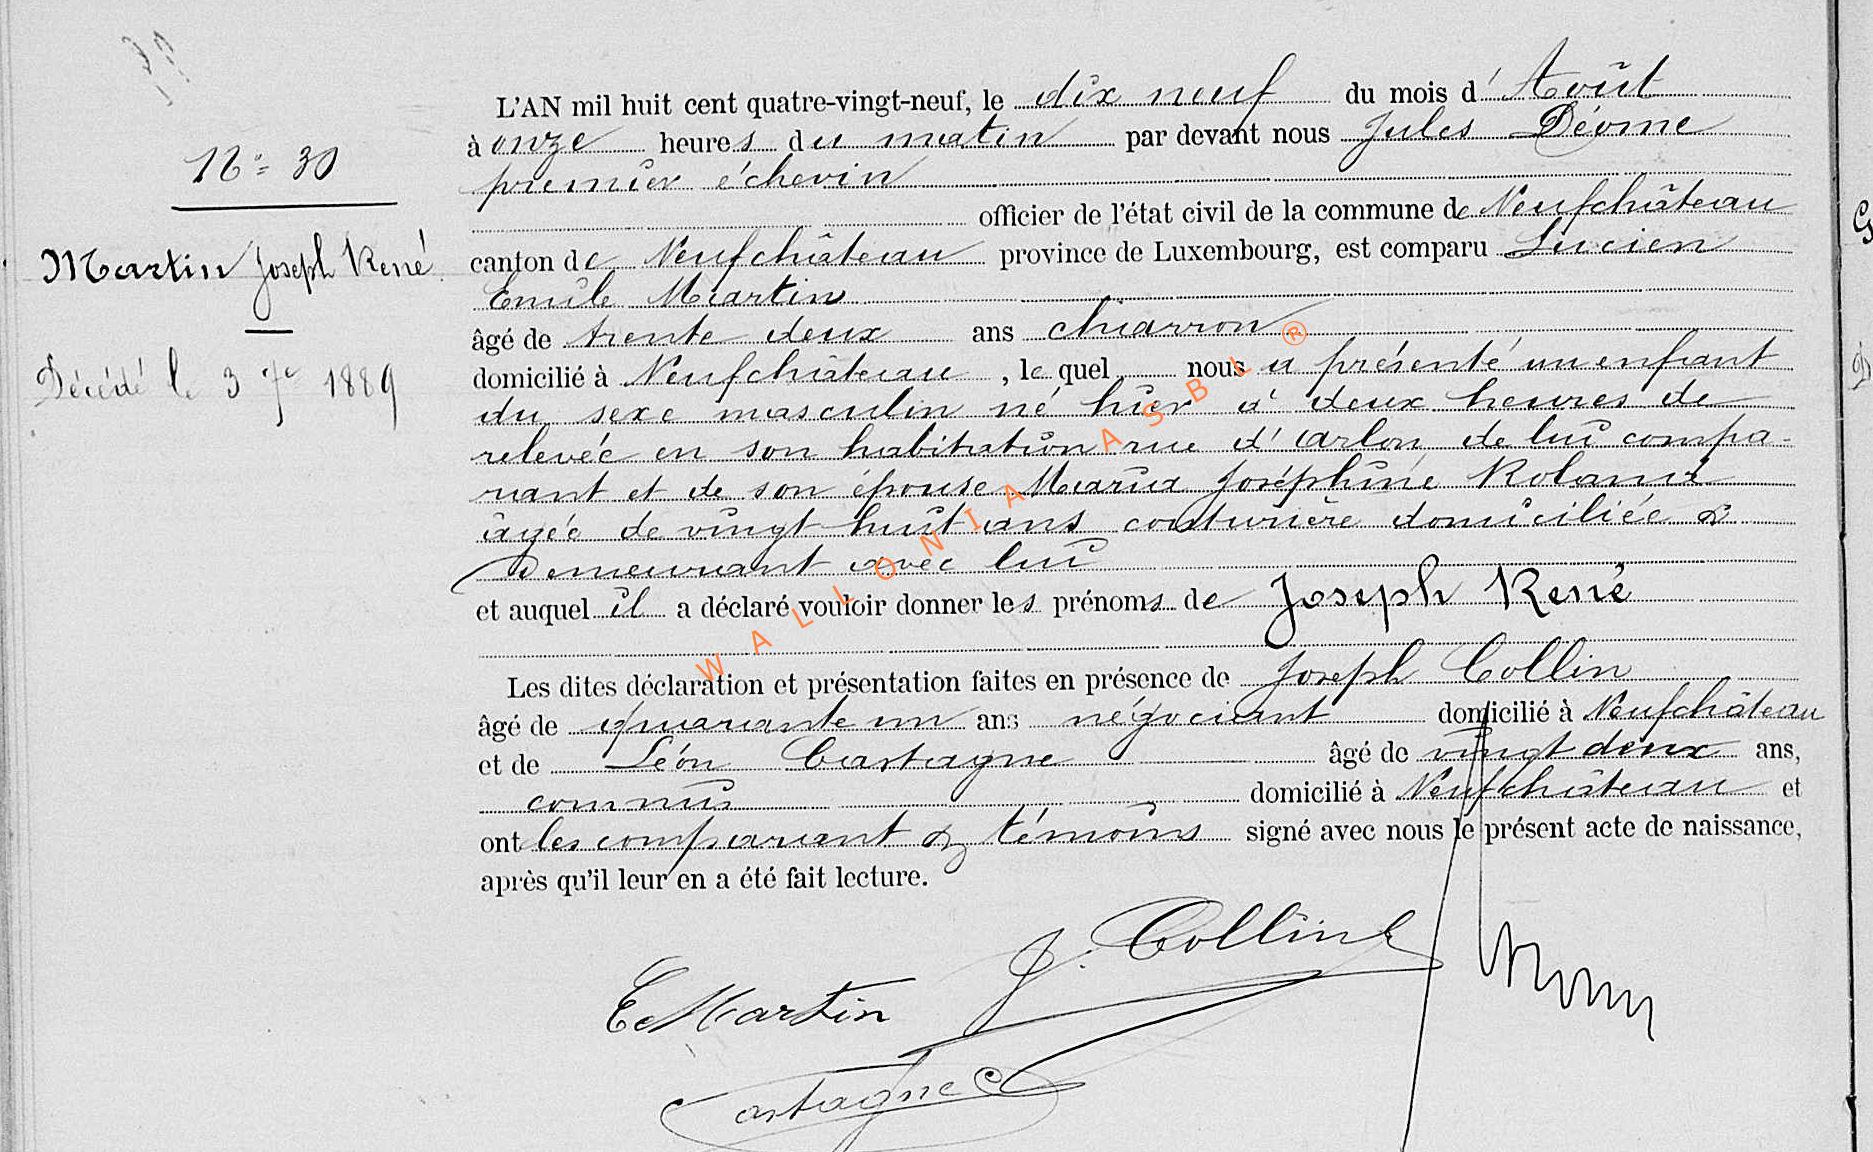 N° 30
Martin Joseph René
Décédé le 3 7e 1889
L'AN mil huit cent quatre-vingt-neuf, le dix neuf du mois d'Août
à onze heures du matin par devant nous Jules Déome
premier échevin
officier de l'état civil de la commune de Neufchâteau
canton de Neufchâteau province de Luxembourg, est comparu Lucien
Emile Martin
âgé de trente deux ans charron
domicilié à Neufchâteau, le quel nous a présenté un enfant
du sexe masculin né hier à deux heures de
relevée en son habitation rue d'arlon, de lui compa-
rant et de son épouse Maria Joséphine Roland
âgée de vingt huit ans couturière domiciliée &
demeurant avec lui
et auquel il a déclaré vouloir donner les prénoms de Joseph René
Les dites déclaration et présentation faites en présence de Joseph Collin
âgé de quarante un ans négociant domicilié à Neufchâteau
et de Léon Castagne âgé de vingt deux ans,
commis domicilié à Neufchâteau et
ont les comparant & témoins signé avec nous le présent acte de naissance,
après qu'il leur en a été fait lecture.
J. Collin
E Martin
Castagne
WALLONIA ASBL ®